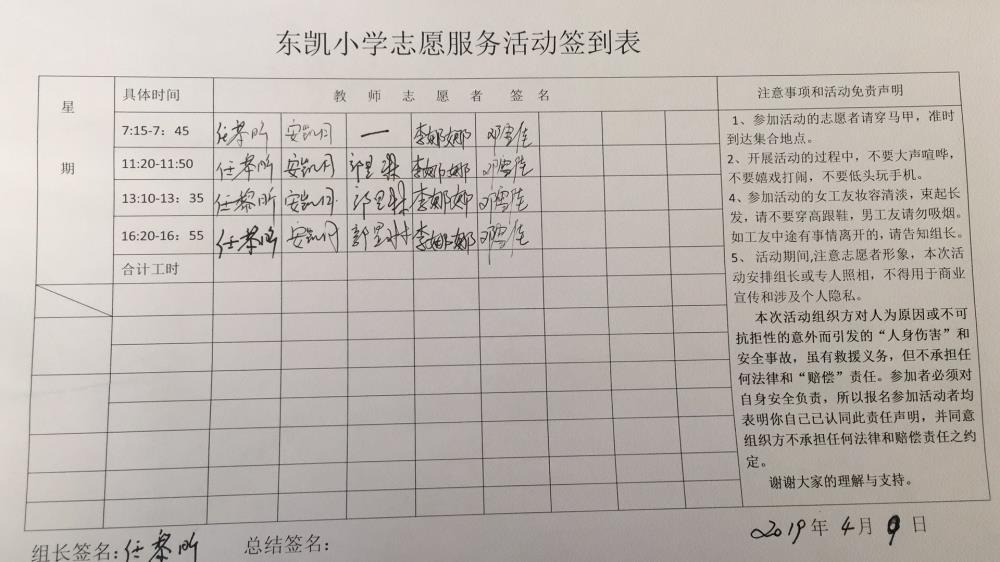 东凯小学志愿服务活动签到表
星期
具体时间
教师志愿者签名
注意事项和活动免责声明
7:15-7：45 任黎昕 安凯月 一 李娜娜 邓雪佳
11:20-11:50 任黎昕 安凯月 李娜娜 邓雪佳
13:10-13：35 任黎昕 安凯月 李娜娜 邓雪佳
16:20-16：55 任黎昕 安凯月 李娜娜 邓雪佳
合计工时
1、参加活动的志愿者请穿马甲，准时
到达集合地点。
2、开展活动的过程中，不要大声喧哗，
不要嬉戏打闹，不要低头玩手机。
4、参加活动的女工友妆容清淡，束起长
发，请不要穿高跟鞋，男工友请勿吸烟。
如工友中途有事情离开的，请告知组长。
5、 活动期间,注意志愿者形象，本次活
动安排组长或专人照相，不得用于商业
宣传和涉及个人隐私。
本次活动组织方对人为原因或不可
抗拒性的意外而引发的“人身伤害”和
安全事故，虽有救援义务，但不承担任
何法律和“赔偿”责任。参加者必须对
自身安全负责，所以报名参加活动者均
表明你自己已认同此责任声明，并同意
组织方不承担任何法律和赔偿责任之约
定。
谢谢大家的理解与支持。
组长签名:任黎昕 总结签名：
2019年4月9日